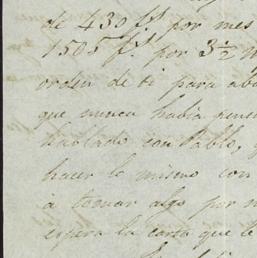 de 430 f.s por mes
1505 f.s por 3 1/2
orden de ti para
que nunca habia
hablado con Pablo,
hacer lo mismo con
á tomar algo por
espera la carta que te